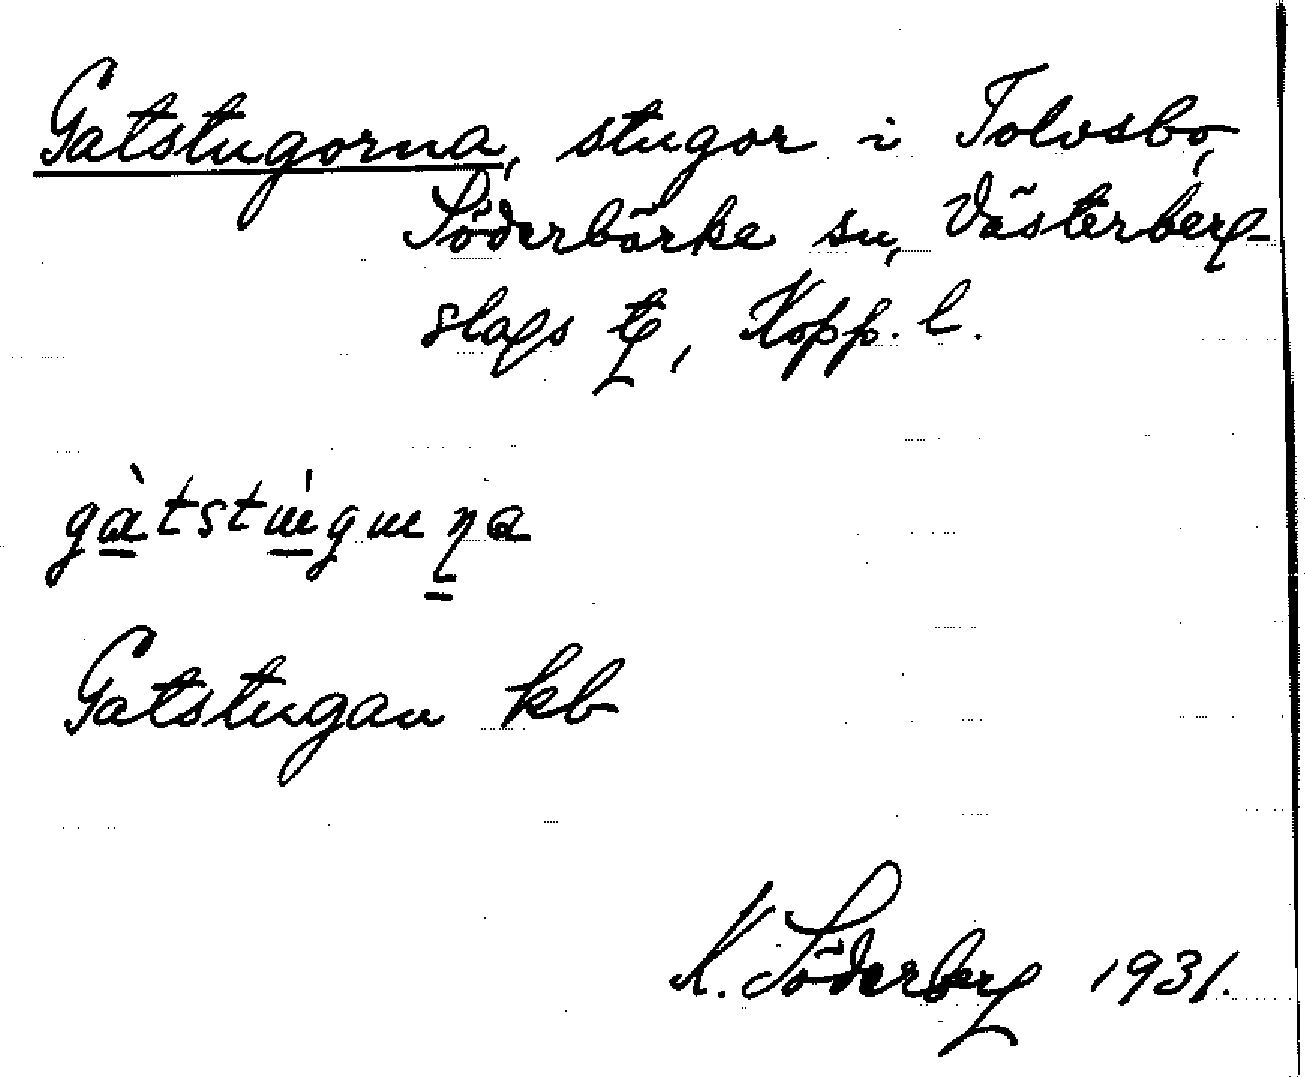 Gatstugorna, stugor i Tolvsbo,
Söderbärke sn, Västerberg-
slags tg, Kopp. l.
gàtstúguṇa
Gatstugan kb
K. Söderberg 1931.